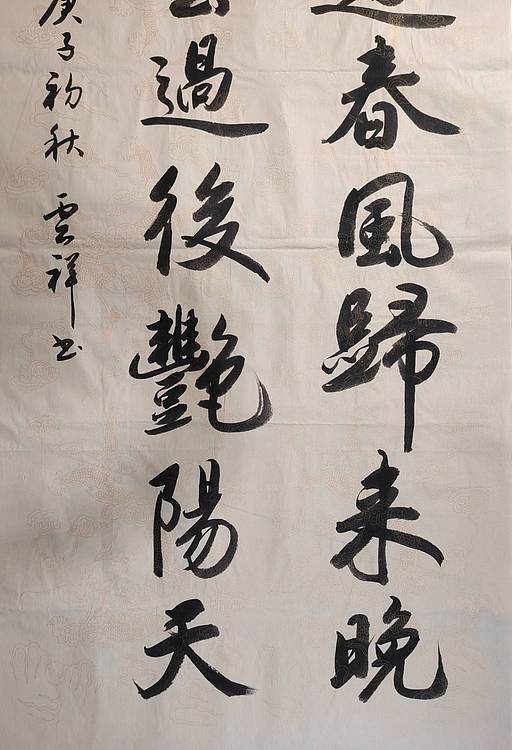 春風歸来晚
過後艷陽天
庚子初秋 雲祥书